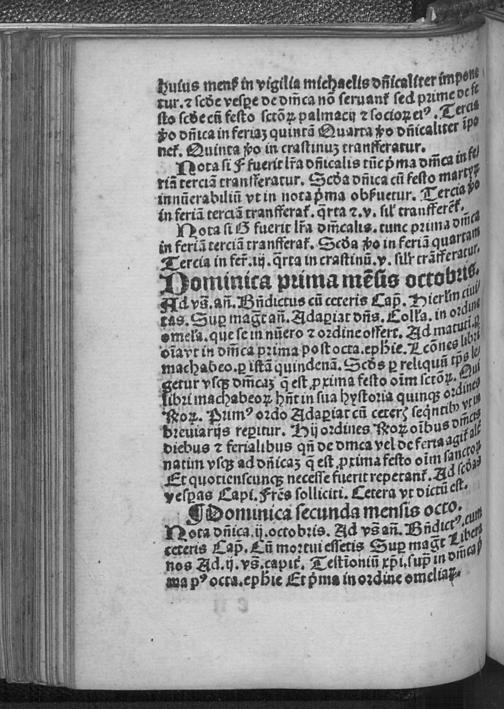 huius mens̄ in vigilia michaelis dn̄icaliter impone
tur. ⁊ scd̄e vesꝑe de dm̄ca nō seruant̄ sed prime de fe
sto scd̄e cū festo sctō℞ palmacij ⁊ socior̄ eiꝰ. Tercia
ꝟo dn̄ica in feriaꝫ quintā Quarta ꝟo dn̄icaliter īpo
net̄. Quinta ꝟo in crastinuꝫ transferatur.
Nota si F fuerit lr̄a dn̄icalis tūc pͥma dm̄ca in fe
riā terciā transferatur. Scd̄a dn̄ica cū festo martyꝝ
innūerabiliū vt in nota pͥma obẜuetur. Tercia ꝟo
in feriā terciā transferat̄. qͣrta ⁊ .v. silʳ transferēt̄.
Nota si G fuerit lr̄a dm̄calis. tunc prima dm̄ca
in feriā terciā transferat̄. Scd̄a ꝟo in feriā quartam
Tercia in fer̄. iij. qͣrta in crastinū .v. silʳ trāsferatur.
Dominica prima mēsis octobris.
Ad vs̄. an̄. Bn̄dictus cū ceteris Cap̄. Hierl̄m ciui
tas. Suꝑ magt̄ an̄. Adaꝑiat dn̄s. Coll̄a. in ordine
omel̄a. que se in nūero ⁊ ordine offert. Ad matuť.
oīa vt in dm̄ca prima post octa. eph̄ie. Lcōnes libri
machabeo℞ ꝑ istā quindenā. Scd̄s ꝑ reliquū tꝑs le
getur vsqꝫ dm̄caꝫ q̄ est ꝓxima festo oīm sctō℞. Qui
libri machabeo℞ hn̄t in sua hystoria quinqꝫ ordines
℞o℞. Primꝰ ordo Adaꝑiat cū ceterꝭ seqn̄tibꝰ vt in
breuiarijs reꝑitur. Hij ordines ℞o℞ oībus dm̄cis
diebus ⁊ ferialibus qn̄ de dm̄ca vel de feria agit̄ alt̄
natim vsqꝫ ad dn̄icaꝫ q̄ est ꝓxima festo oīm sancto℞
Et quotienscunqꝫ necesse fuerit repetant̄. Ad scd̄as
vesꝑas Capi. Fr̄es solliciti. Cetera vt dictū est.
¶ Dominica secunda mensis octo.
Nota dn̄ica .ij. octobris. Ad vs̄ an̄. Bn̄dictꝰ. cum
ceteris Cap̄. Cū mortui essetis Suꝑ magt̄ Libera
nos Ad .ij. vs̄. capit̄. Testīoniū xp̄i. suꝑ in dm̄ca p
ma pꝰ octa. eph̄ie Et pͥma in ordine omelia℞.